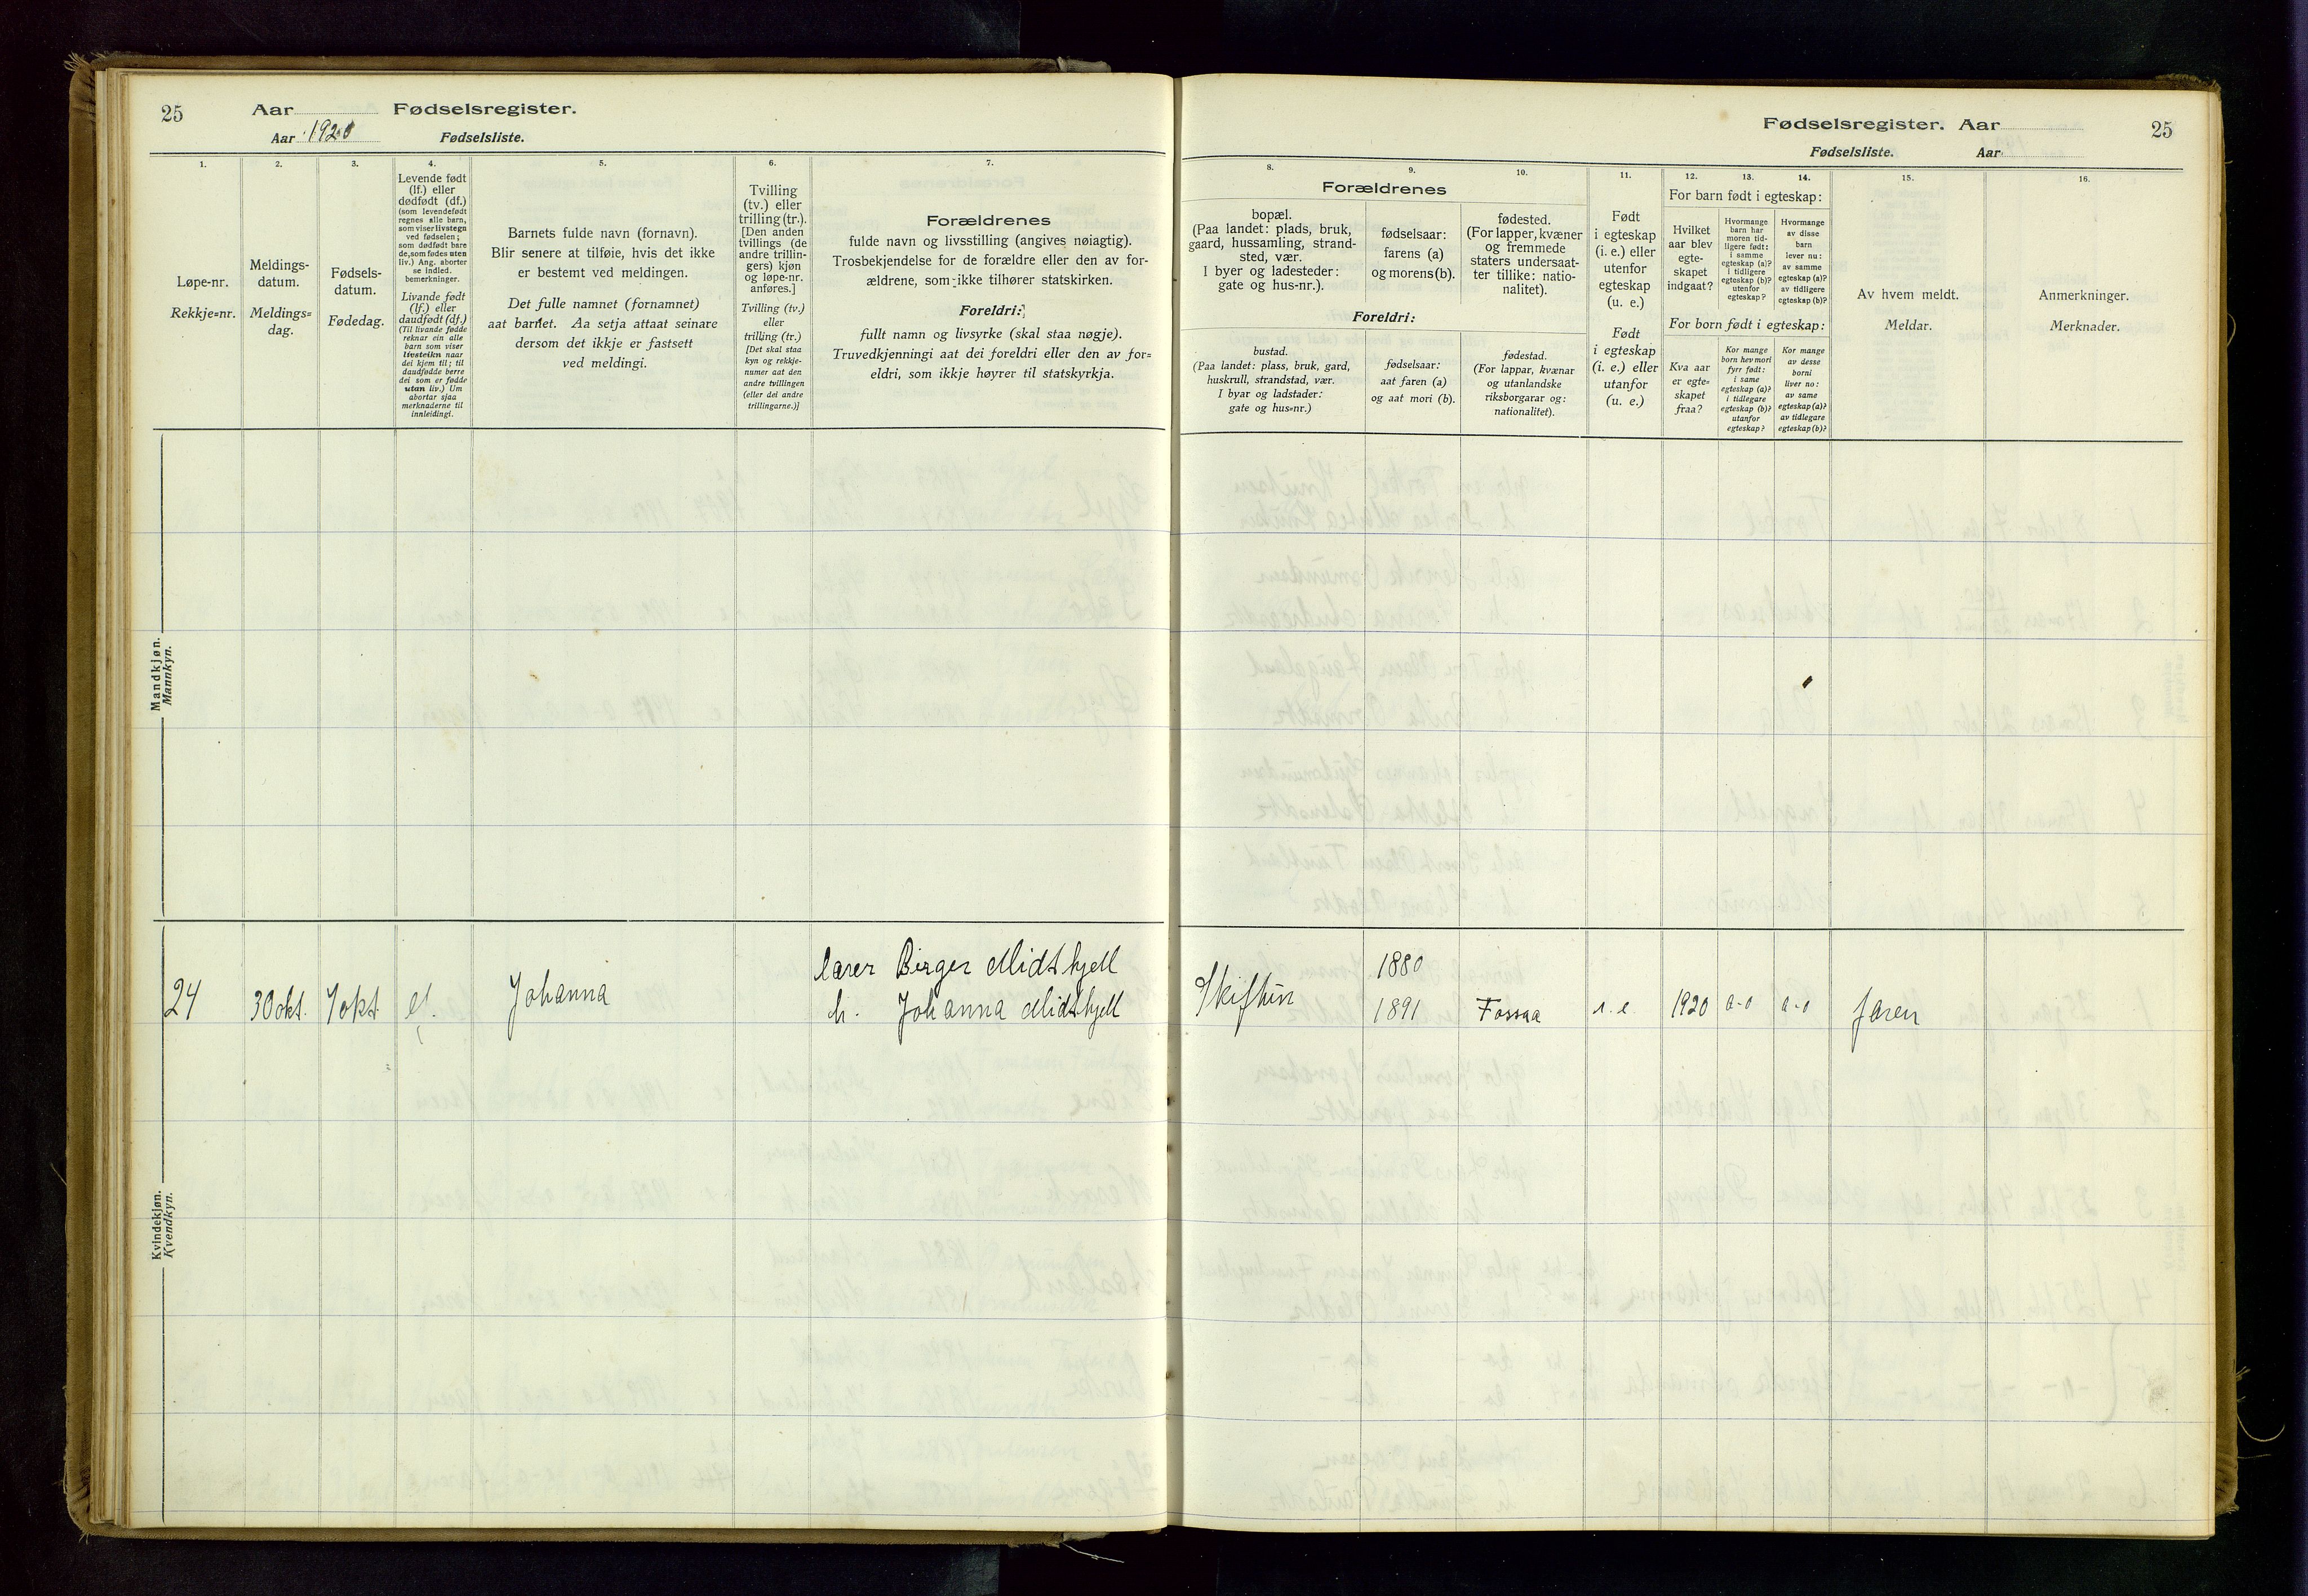 25
Aar Fødselsregister.
Aar 1920 Fødselsliste.
1.
Løpe-nr.
Rekkje=nr.
2.
Meldings-
datum.
Meldings=
dag.
3.
Fødsels-
datum.
Fødedag.
4.
Levende født
(lf.) eller
dødfødt (df.)
(som levendefødt
regnes alle barn,
som viser livstegn
ved fødselen;
som dødfødt bare
de, som fødes uten
liv.) Ang. aborter
se indled.
bemerkninger.
Livande født
(lf.) eller
daudfødt (df.)
(Til livande fødde
reknar ein alle
barn som viser
livsteikn naar
dei kjem til; til
daudfødde berre
dei som er fødde
utan liv.) Um
abortar sjaa
merknaderne til
innleidingi.
5.
Barnets fulde navn (fornavn).
Blir senere at tilføie, hvis det ikke
er bestemt ved meldingen.
Det fulle namnet (fornamnet)
aat barnet. Aa setja attaat seinare
dersom det ikkje er fastsett
ved meldingi.
6.
Tvilling
(tv.) eller
trilling (tr.).
[Den anden
tvillings (de
andre trillin-
gers) kjøn
og løpe-nr.
anføres.]
Tvilling (tv.)
eller
trilling (tr.)
[Det skal staa
kyn og rekkje-
numer aat den
andre tvillingen
(eller dei andre
trillingarne.)]
7.
Forældrenes
fulde navn og livsstilling (angives nøiagtig).
Trosbekjendelse for de forældre eller den av for-
ældrene, som ikke tilhører statskirken.
Foreldri:
fullt namn og livsyrke (skal staa nøgje).
Truvedkjenningi aat dei foreldri eller den av for=
eldri, som ikkje høyrer til statskyrkja.
Mandkjøn.
Mannkyn.
Kvindekjøn.
Kvendkyn.
24
30 okt.
7 okt.
lf.
Johanna
lærer Birger Midtkjell
h. Johanna Midtkjell
Fødselsregister. Aar
25
Fødselsliste. Aar
8. 9. 10.
Forældrenes
bopæl.
(Paa landet: plads, bruk,
gaard, hussamling, strand-
sted, vær.
I byer og ladesteder:
gate og hus-nr.).
fødselsaar:
farens (a)
og morens (b).
fødested.
(For lapper, kvæner
og fremmede
staters undersaat-
ter tillike: natio-
nalitet).
Foreldri:
bustad.
(Paa landet: plass, bruk, gard,
huskrull, strandstad, vær.
I byar og ladstader:
gate og hus=nr.)
fødselsaar:
aat faren (a)
og aat mori (b).
fødestad.
(For lappar, kvænar
og utanlandske
riksborgarar og:
nationalitet).
11.
Født
i egteskap
(i. e.) eller
utenfor
egteskap
(u. e.)
Født
i egteskap
(i. e.) eller
utanfor
(u. e.)
12. 13. 14.
For barn født i egteskap:
Hvilket
aar blev
egte-
skapet
indgaat?
Hvormange
barn har
moren tid-
ligere født:
i samme
egteskap (a)?
i tidligere
egteskap (b)?
utenfor
egteskap?
Hvormange
av disse
barn
lever nu:
av samme
egteskap (a)?
av tidligere
egteskap (b)?
For born født i egteskap:
Kva aar
er egte=
skapet
fraa?
Kor mange
born hev mori
fyrr født:
i same
egteskap (a)?
i tidlegare
egteskap (b)?
utanfor
egteskap?
Kor mange
av desse
borni
liver no:
av same
egteskap (a)?
av tidlegare
egteskap (b)?
15.
Av hvem meldt.
Meldar.
16.
Anmerkninger.
Merknader.
Skiftun
1880
1891
Fossaa
i. e.
1920
a-0
a-0
faren